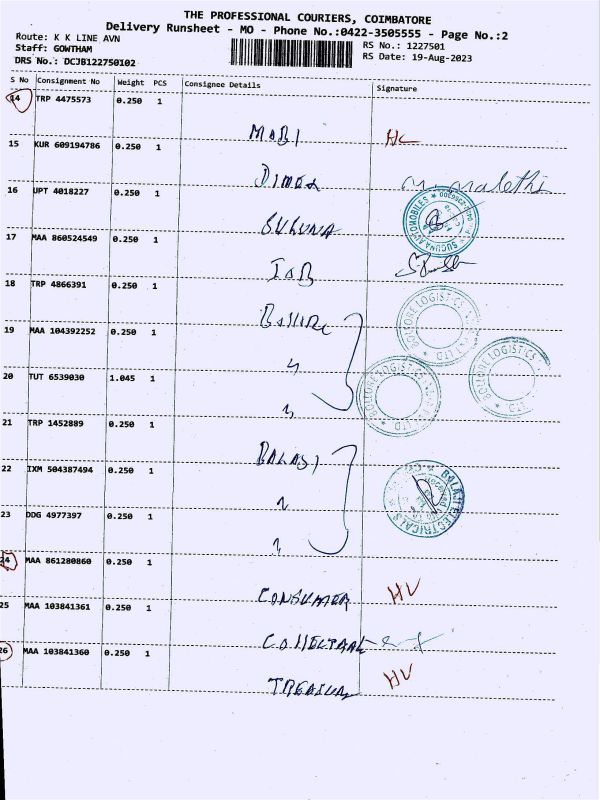 THE PROFESSIONAL COURIERS, COIMBATORE
Delivery Runsheet - MO - Phone No.:0422-3505555 - Page No.:2
Route: K K LINE AVN
RS No.: 1227501
Staff: GOWTHAM
RS Date: 19-Aug-2023
DRS No.: DCJB122750102
S No Consignment No Weight PCS Consignee Details Signature
14 TRP 4475573 0.250 1
MABI HC
15 KUR 609194786 0.250 1
16 UPT 4018227 0.250 1
SUGUNA SUGUNA AUTOMOBILES
17 MAA 860524549 0.250 1
IOB
18 TRP 4866391 0.250 1
19 MAA 104392252 0.250 1
BOLLORE LOGISTICS
20 TUT 6539030 1.045 1
21 TRP 1452889 0.250 1
BALAJI
22 IXM 504387494 0.250 1
BALAJI ELECTRICALS
23 DDG 4977397 0.250 1
24 MAA 861280860 0.250 1
CONSUMER HV
25 MAA 103841361 0.250 1
26 MAA 103841360 0.250 1
HV